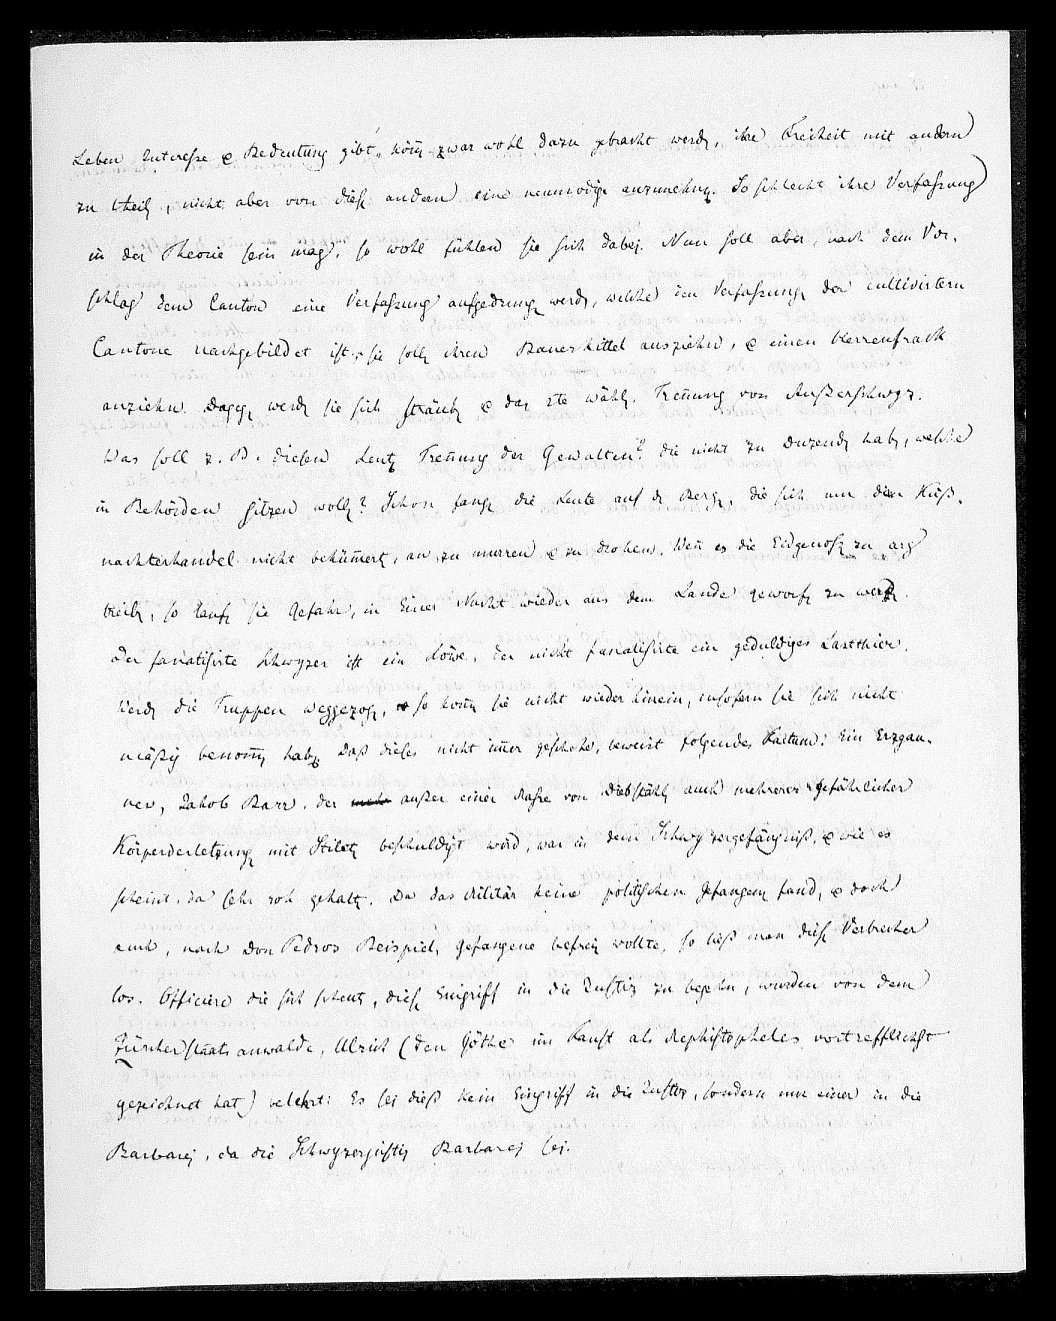 Leben Interesse & Bedeutung gibt, kön̄ zwar wohl dazu gebracht werdn, ihre Freiheit mit andern
zu theiln, nicht aber von diesn andern eine neumodige anzunehmn. So schlecht ihre Verfassung
in der Theorie sein mag, so wohl fühlen sie sich dabei. Nun soll aber, nach dem Vor-
schlag dem Canton eine Verfassung aufgedrungn werdn, welche den Verfassungn der cultivirten
Cantone nachgebildet ist, sie solln ihren Bauerkittel ausziehn, & einen Herrenfrack
anziehn. Dagegn werdn sie sich sträubn & das 2te wähln. Treñung von Außerschwyz.
Was soll z. B. diesen Leutn Treñung der Gewalten? die nicht zu Duzendn habn, welche
in Behörden sitzen wolln? Schon fangn die Leute auf dn Bergn, die sich um den Küß-
nachterhandel nicht beküm̄ertn, an zu murren & zu drohen. Weñ es die Eidgenossn zu arg
treibn, so laufn sie Gefahr, in Einer Nacht wieder aus dem Lande geworfn zu werdn.
Der fanatisirte Schwyzer ist ein Löwe, der nicht fanatisirte ein geduldiges Lastthier.
Werdn die Truppen weggezogn, so kom̄n sie nicht wieder hinein, insofern sie sich nicht
mäßig benom̄n habn. Daß dieses nicht im̄er geschehe, beweist folgendes Factum: Ein Erzgau-
ner, Jakob Barr, der außer einer Masse von Diebstähln auch mehrerer gefährlicher
Körperverletzungn mit Stiletn beschuldigt wird, war in dem Schwyzergefängniß, & wie es
scheint, da sehr roh gehaltn. Da das Militär keine politischen Gefangenn fand, & doch
auch, nach Don Pedros Beispiel, Gefangene befrein wollte, so ließ man diesn Verbrecher
los. Officiere die sich scheutn, diesn Eingriff in die Justiz zu begehn, wurden von dem
Zürcher Staatsanwalde, Ulrich (den Göthe im Faust als Mephistopheles vortrefflichst
gezeichnet hat) belehrt: Es sei dieß kein Eingriff in die Justiz, sondern nur einer in die
Barbarei, da die Schwyzerjustiz Barbarei sei.